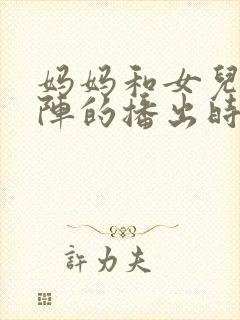 妈妈和女兒
陣的播出時
許力夫